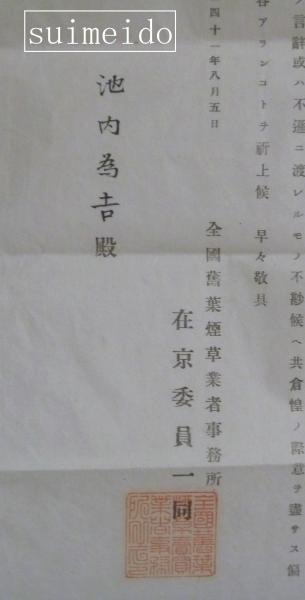 suimeido
ノ言辭或ハ不遜ニ渡レルモノ不尠候ヘ共倉惶ノ際意ヲ盡サス偏
容アランコトヲ祈上候 早々敬具
四十一年八月五日
全國舊葉煙草業者事務所
在京委員一同
池内為吉殿